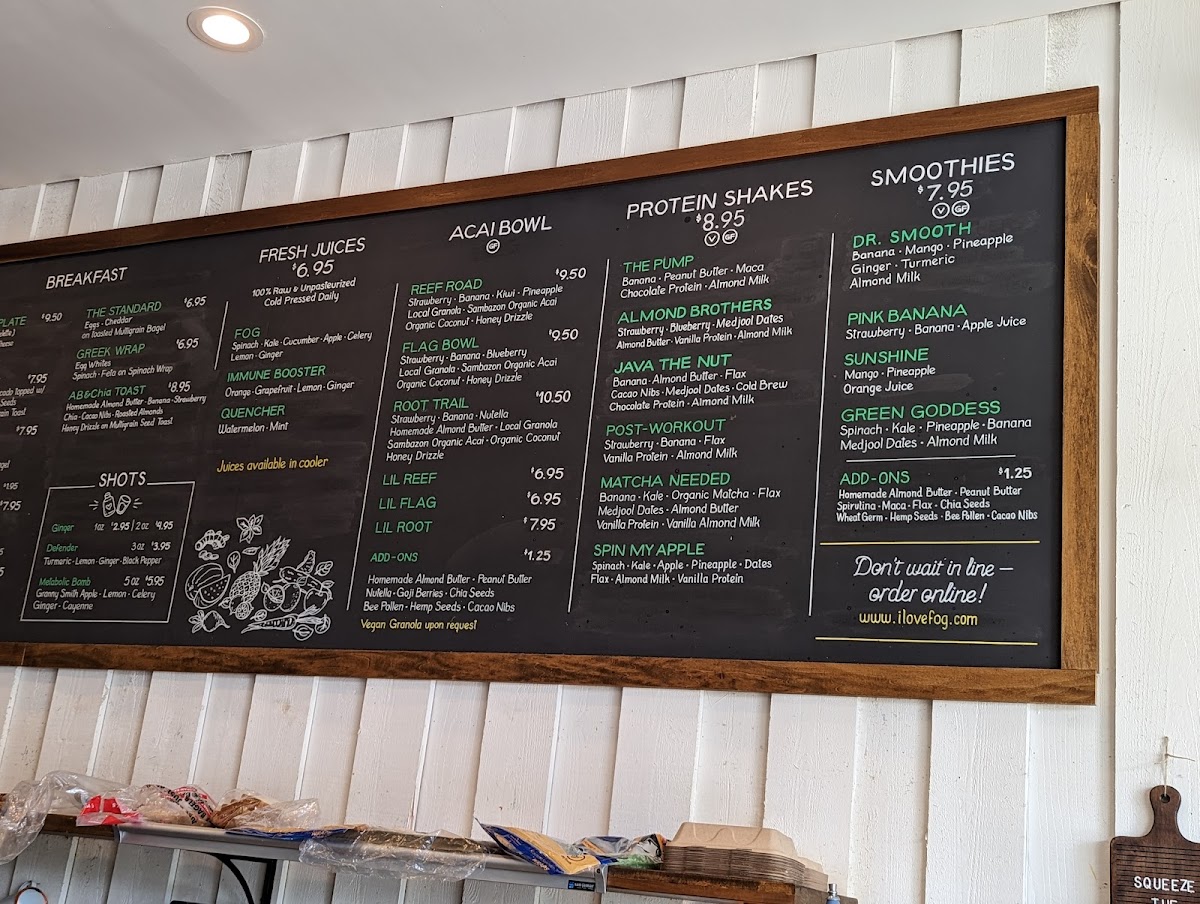 BREAKFAST
PLATE $9.50
$7.95
Seeds
$7.95
$1.95
$7.95
THE STANDARD $6.95
Eggs · Cheddar
on Toasted Multigrain Bagel
GREEK WRAP $6.95
Egg Whites
Spinach · Feta on Spinach Wrap
AB&Chia TOAST $8.95
Homemade Almond Butter · Banana · Strawberry
Chia · Cacao Nibs · Roasted Almonds
Honey Drizzle on Multigrain Seed Toast
SHOTS
Ginger 1oz $2.95 / 2oz $4.95
Defender 3oz $3.95
Turmeric · Lemon · Ginger · Black Pepper
Metabolic Bomb 5oz $5.95
Granny Smith Apple · Lemon · Celery
Ginger · Cayenne
FRESH JUICES
$6.95
100% Raw & Unpasteurized
Cold Pressed Daily
FOG
Spinach · Kale · Cucumber · Apple · Celery
Lemon · Ginger
IMMUNE BOOSTER
Orange · Grapefruit · Lemon · Ginger
QUENCHER
Watermelon · Mint
Juices available in cooler
ACAI BOWL
GF
REEF ROAD $9.50
Strawberry · Banana · Kiwi · Pineapple
Local Granola · Sambazon Organic Acai
Organic Coconut · Honey Drizzle
FLAG BOWL $9.50
Strawberry · Banana · Blueberry
Local Granola · Sambazon Organic Acai
Organic Coconut · Honey Drizzle
ROOT TRAIL $10.50
Strawberry · Banana · Nutella
Homemade Almond Butter · Local Granola
Sambazon Organic Acai · Organic Coconut
Honey Drizzle
LIL REEF $6.95
LIL FLAG $6.95
LIL ROOT $7.95
ADD-ONS $1.25
Homemade Almond Butter · Peanut Butter
Nutella · Goji Berries · Chia Seeds
Bee Pollen · Hemp Seeds · Cacao Nibs
Vegan Granola upon request
PROTEIN SHAKES
$8.95
V GF
THE PUMP
Banana · Peanut Butter · Maca
Chocolate Protein · Almond Milk
ALMOND BROTHERS
Strawberry · Blueberry · Medjool Dates
Almond Butter · Vanilla Protein · Almond Milk
JAVA THE NUT
Banana · Almond Butter · Flax
Cacao Nibs · Medjool Dates · Cold Brew
Chocolate Protein · Almond Milk
POST-WORKOUT
Strawberry · Banana · Flax
Vanilla Protein · Almond Milk
MATCHA NEEDED
Banana · Kale · Organic Matcha · Flax
Medjool Dates · Almond Butter
Vanilla Protein · Vanilla Almond Milk
SPIN MY APPLE
Spinach · Kale · Apple · Pineapple · Dates
Flax · Almond Milk · Vanilla Protein
SMOOTHIES
$7.95
V GF
DR. SMOOTH
Banana · Mango · Pineapple
Ginger · Turmeric
Almond Milk
PINK BANANA
Strawberry · Banana · Apple Juice
SUNSHINE
Mango · Pineapple
Orange Juice
GREEN GODDESS
Spinach · Kale · Pineapple · Banana
Medjool Dates · Almond Milk
ADD-ONS $1.25
Homemade Almond Butter · Peanut Butter
Spirulina · Maca · Flax · Chia Seeds
Wheat Germ · Hemp Seeds · Bee Pollen · Cacao Nibs
Don't wait in line –
order online!
www.ilovefog.com
SQUEEZE
THE